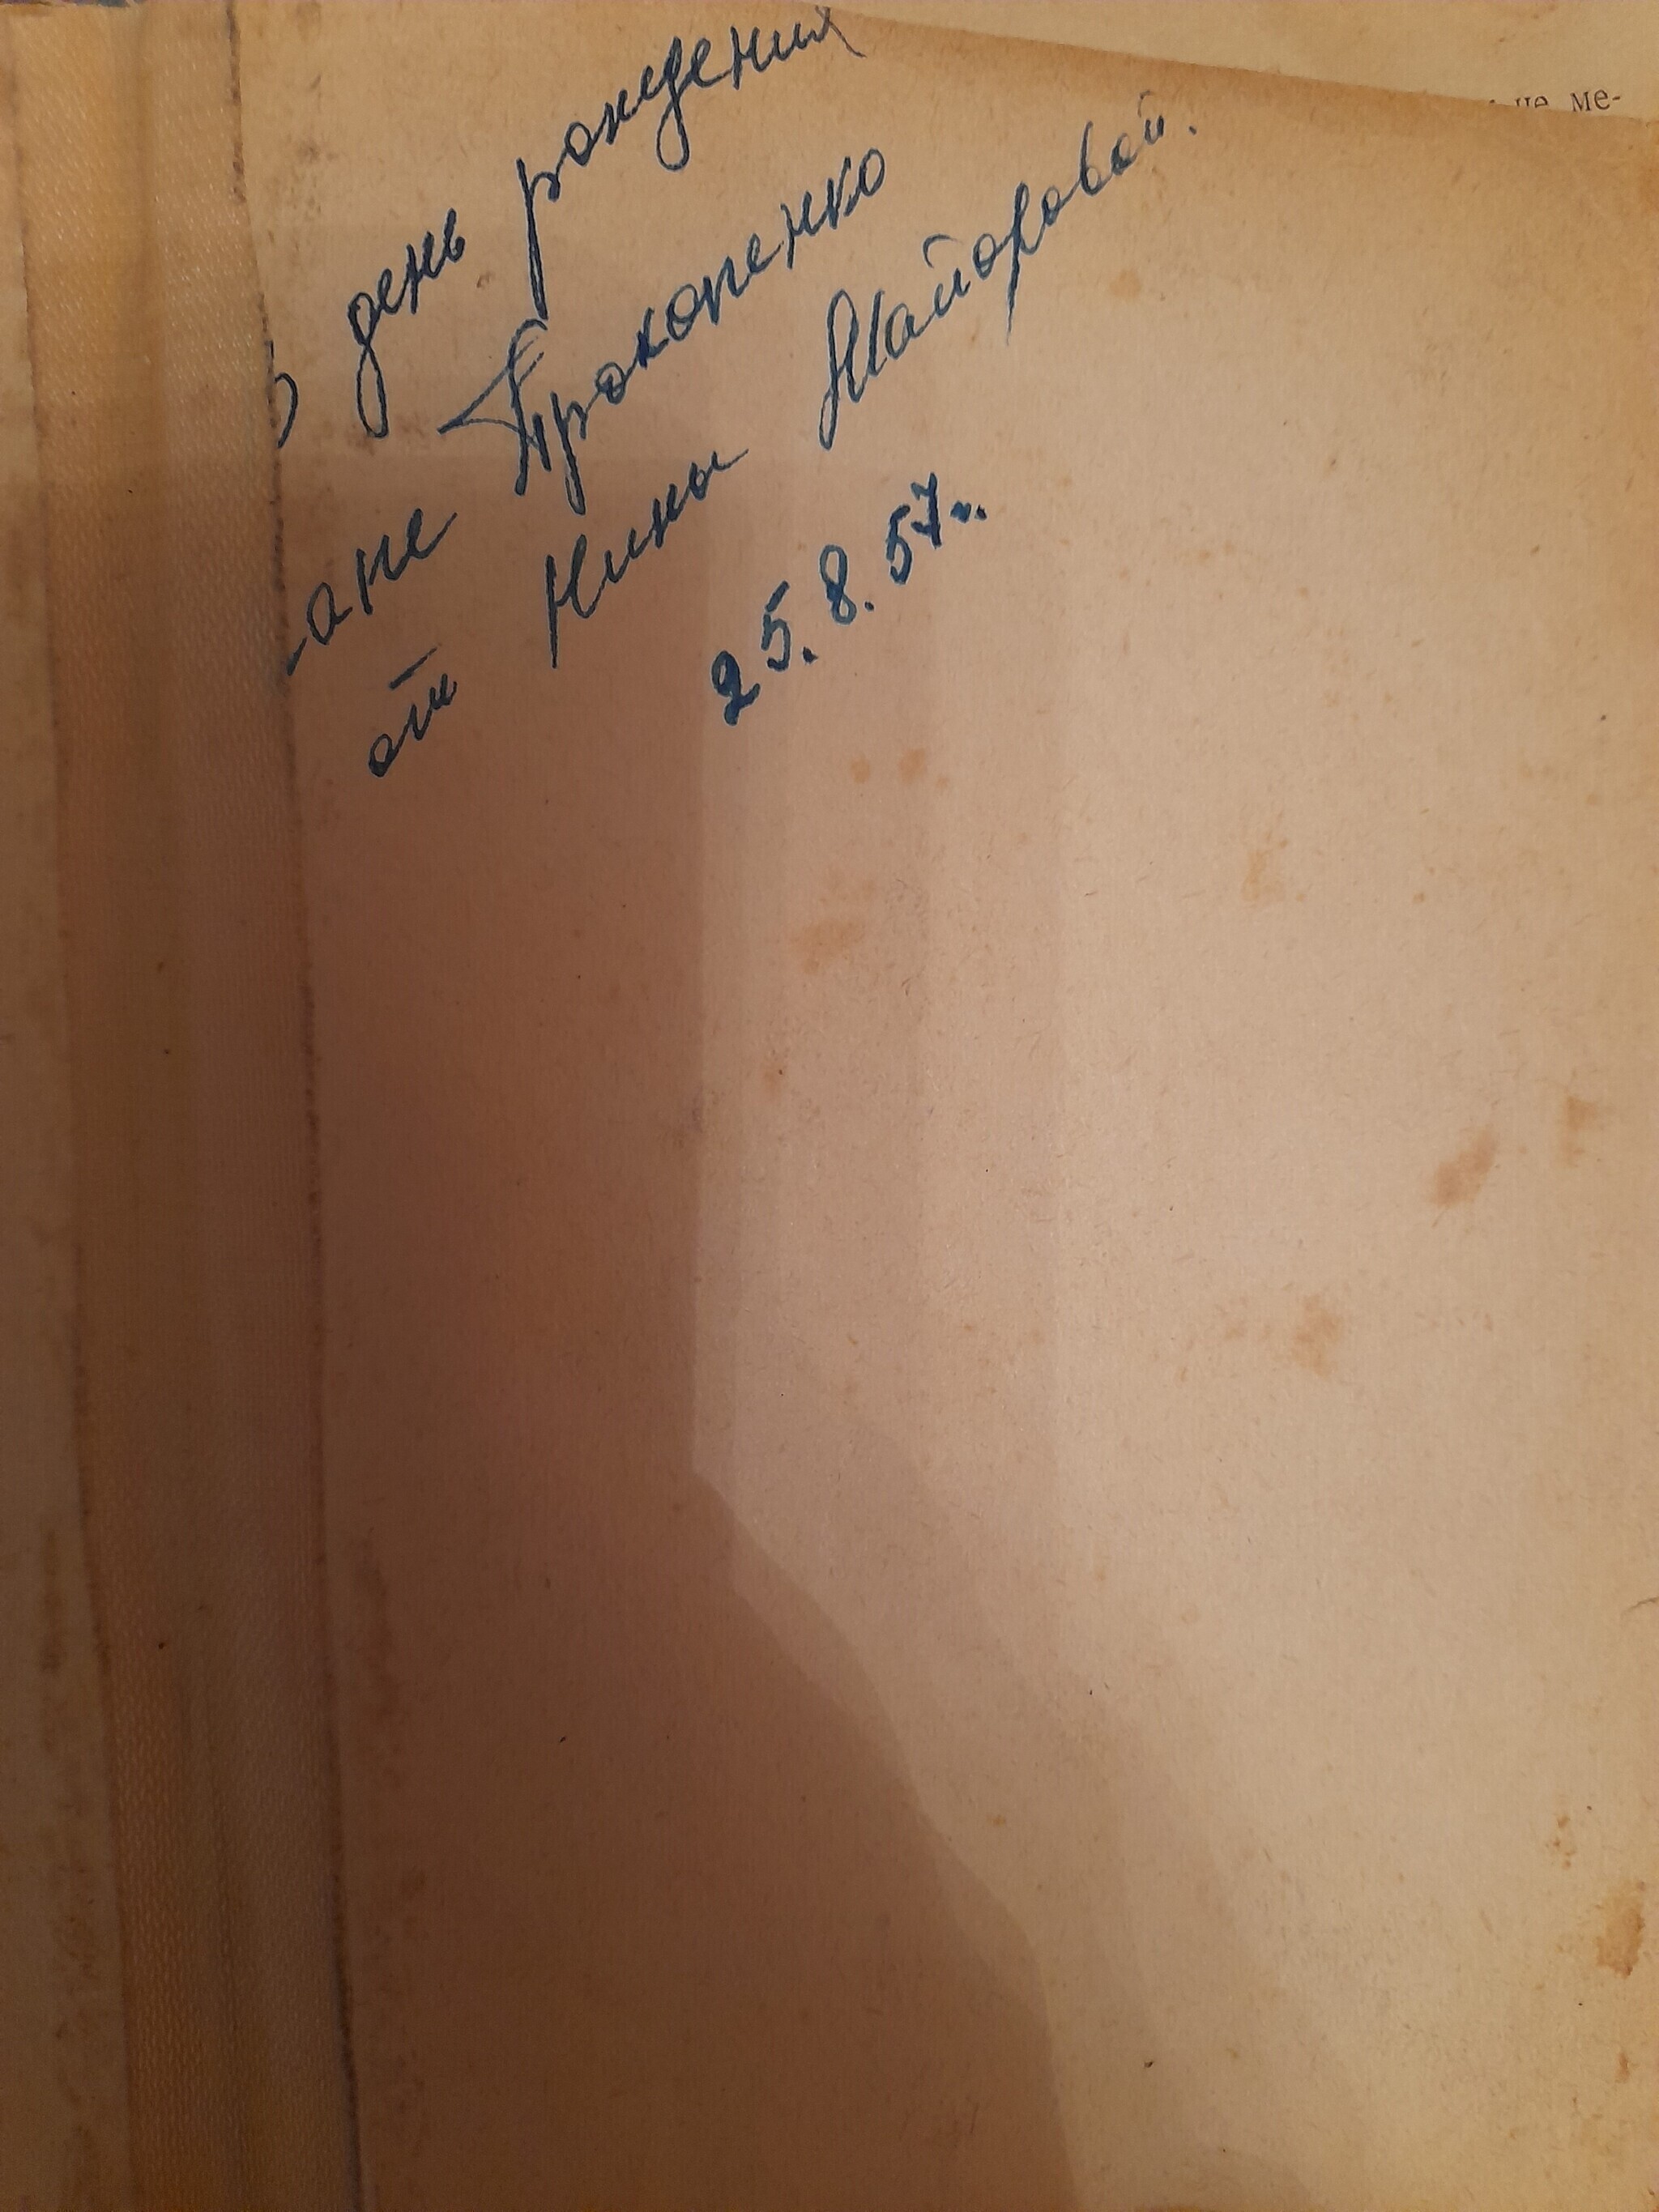 не ме-
день рождения
ане Прокопенко
от Нины Майоровой.
25.8.57г.